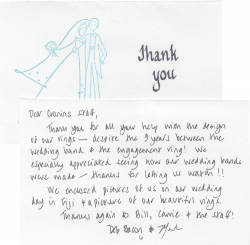 Thank
you
Dear Cronins Staff,
Thank you for all your help with the design
of our rings — despite the 9 years between the
wedding band & the engagement ring! We
especially appreciated seeing how our wedding bands
were made — thanks for letting us watch!!
We enclosed pictures of us on our wedding
day in Fiji & a picture of our beautiful rings.
Thanks again to Bill, Carrie & the staff!
Deb Bacon &